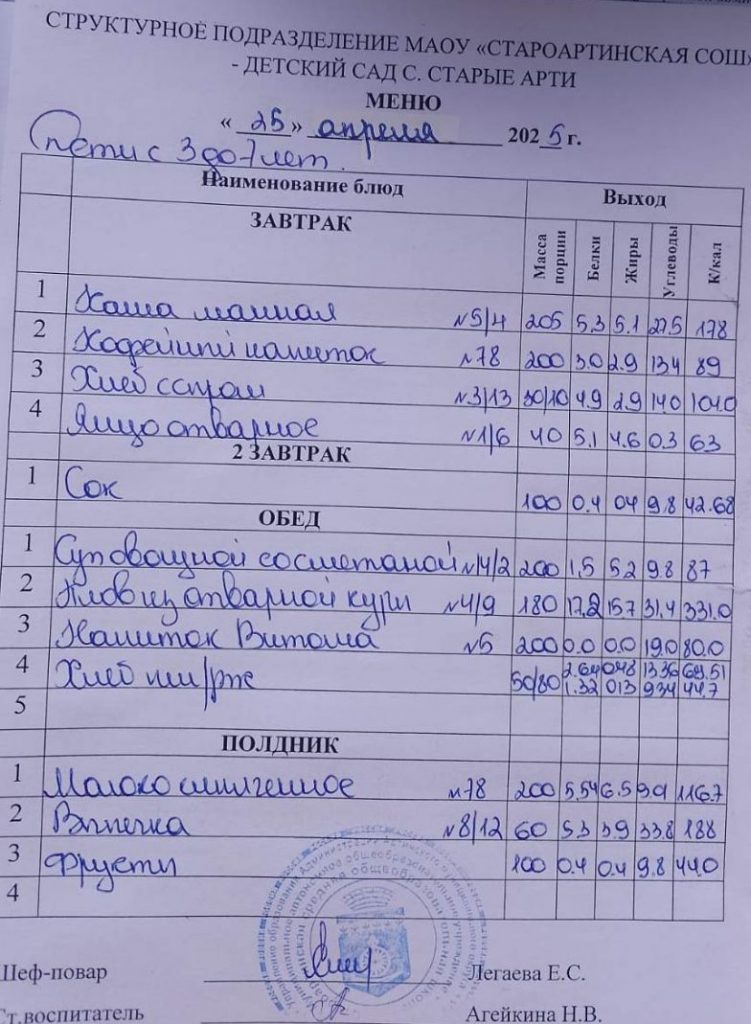 СТРУКТУРНОЕ ПОДРАЗДЕЛЕНИЕ МАОУ «СТАРОАРТИНСКАЯ СОШ»
- ДЕТСКИЙ САД С. СТАРЫЕ АРТИ
МЕНЮ
« 25 » апреля 2025 г.
Дети с 3 до 7 лет.
Наименование блюд Выход
ЗАВТРАК Масса порции Белки Жиры Углеводы К/кал
1 Каша манная №5/4 205 5.3 5.1 27.5 178
2 Кофейный напиток №78 200 3.0 2.9 13.4 89
3 Хлеб с сыром №3/13 30/10 4.9 2.9 14.0 104.0
4 Яйцо отварное №1/6 40 5.1 4.6 0.3 63
2 ЗАВТРАК
1 Сок 100 0.4 0.4 9.8 42.68
ОБЕД
1 Суп овощной со сметаной №4/2 200 1,5 5.2 9.8 87
2 Плов из отварной куры №4/9 180 17,2 15.7 31,4 331.0
3 Напиток Витоша №5 200 0.0 0.0 19.0 80.0
4 Хлеб пш/рж 50/80 2.64 0.48 13.36 69.51
1.32 0.13 9.34 44.7
5
ПОЛДНИК
1 Молоко кипяченое №78 200 5.54 6.5 9.01 116.7
2 Выпечка №8/12 60 5.3 3.9 33.8 188
3 Фрукты 100 0.4 0.4 9.8 44.0
4
Шеф-повар Легаева Е.С.
Ст.воспитатель Агейкина Н.В.